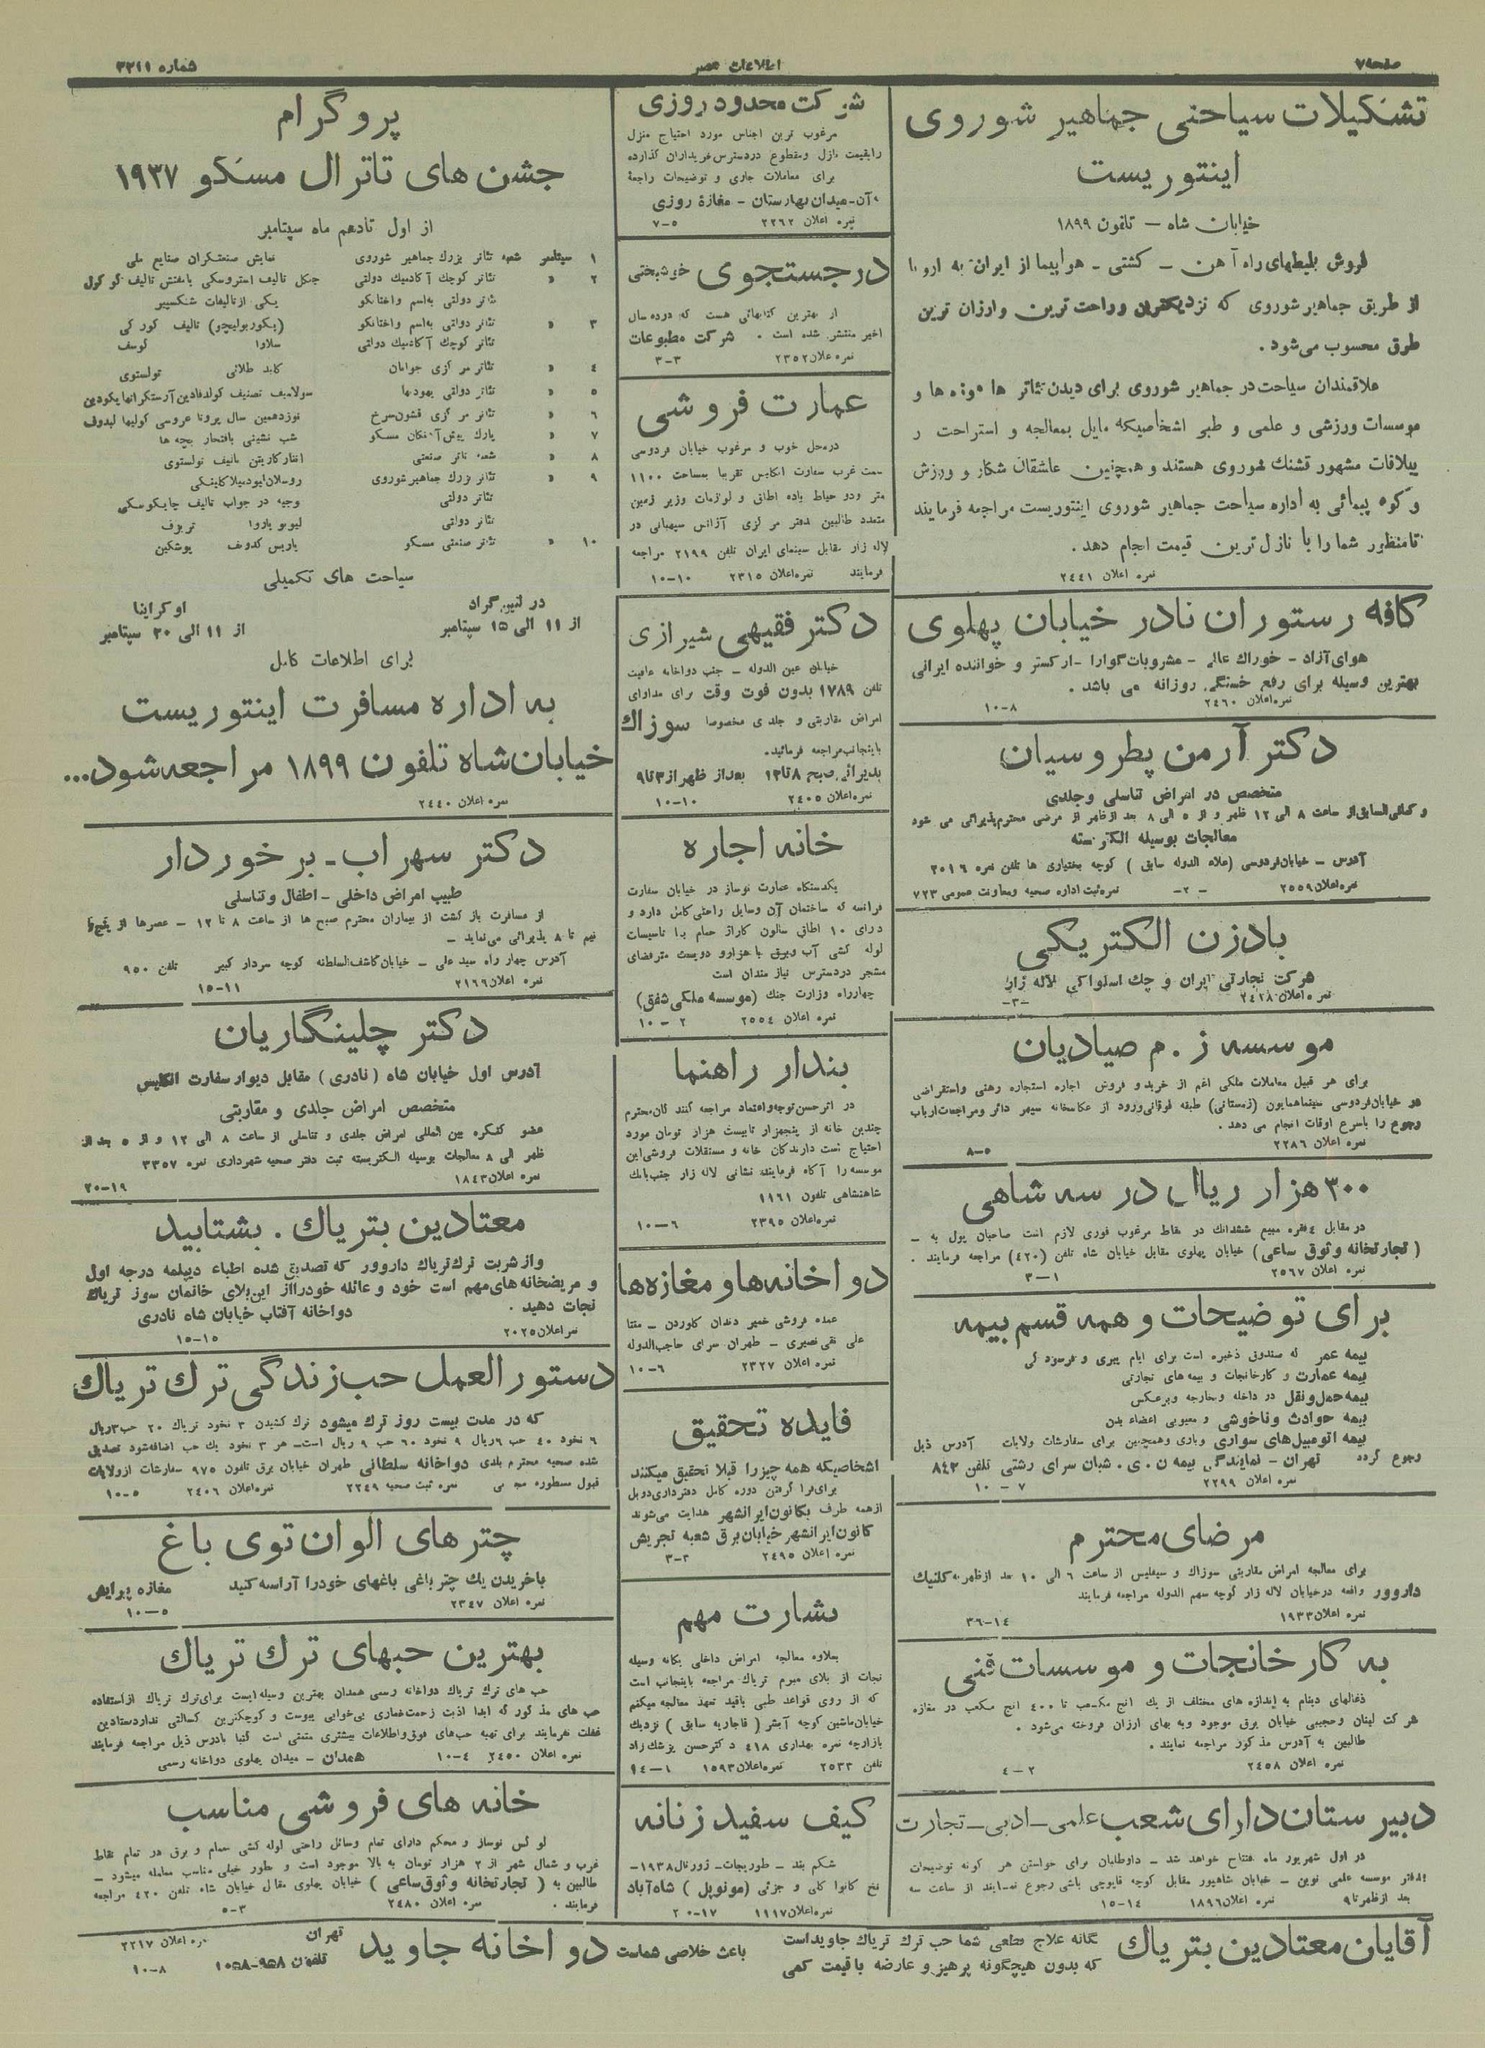 صفحه ۷
اطلاعات عصر
شماره ۳۲۱۱
تشکیلات سیاحتی جماهیر شوروی
اینتوریست
خیابان شاه – تلفون ۱۸۹۹
فروش بلیطهای راه آهن – کشتی – هواپیما از ایران به اروپا
از طریق جماهیر شوروی که نزدیکترین وراحت ترین و ارزان ترین
طرق محسوب می‌شود .
علاقمندان سیاحت در جماهیر شوروی برای دیدن تئاتر ها موزه ها و
موسسات ورزشی و علمی و طبی اشخاصیکه مایل بمعالجه و استراحت در
ییلاقات مشهور قشنك شوروی هستند و همچنین عاشقان شکار و ورزش
و کوه پیمائی به اداره سیاحت جماهیر شوروی اینتوریست مراجعه فرمایند
تا منظور شما را با نازل ترین قیمت انجام دهد .
نمره اعلان ۲٤٤۱
کافه رستوران نادر خیابان پهلوی
هوای آزاد – خوراك عالی – مشروبات گوارا – ارکستر و خواننده ایرانی
بهترین وسیله برای رفع خستگی روزانه می باشد .
نمره اعلان ۲٤٦۰ ۸–۱۰
دکتر آرمن پطروسیان
متخصص در امراض تناسلی و جلدی
و کمافی‌السابق از ساعت ۸ الی ۱۲ ظهر و از ۵ الی ۸ بعد از ظهر از مرضی محترم پذیرائی می شود
معالجات بوسیله الکتریسته
آدرس – خیابان فردوسی (علاء الدوله سابق ) کوچه بختیاری ها تلفن نمره ۲۰۱٦
نمره اعلان ۲۵۵۹ –۲– نمره ثبت اداره صحیه و معاونت عمومی ۷۲۳
بادزن الکتریکی
شرکت تجارتی ایران و چك اسلواکی لاله زار
نمره اعلان ۲٤۲۸ –۳–
موسسه ز . م صیادیان
برای هر قبیل معاملات ملکی اعم از خرید و فروش اجاره استجاره رهنی واستقراضی
در خیابان فردوسی سینما همایون (زمستانی) طبقه فوقانی ورود از عکاسخانه سپهر دائر و مراجعات ارباب
رجوع را باسرع اوقات انجام می دهد .
نمره اعلان ۲۲۸٦ ۵–۸
۳۰۰ هزار ریال در سه شاهی
در مقابل ٤ فقره مبیع ششدانك در نقاط مرغوب فوری لازم است صاحبان پول به –
( تجارتخانه وثوق ساعی) خیابان پهلوی مقابل خیابان شاه تلفن (٤۲۰) مراجعه فرمایند .
نمره اعلان ۲۵٦۷ ۱–۳
برای توضیحات و همه قسم بیمه
بیمه عمر که صندوق ذخیره است برای ایام پیری و فرسودگی
بیمه عمارت و کارخانجات و بیمه های تجارتی
بیمه حمل و نقل در داخله و خارجه وبرعکس
بیمه حوادث و ناخوشی و معیوبی اعضاء بدن
بیمه اتومبیل‌های سواری و باری و همچنین برای سفارشات ولایات آدرس ذیل
رجوع گردد تهران – نمایندگی بیمه ن . ی . شبان سرای رشتی تلفن ۸٤۲
نمره اعلان ۲۲۹۹ ۷–۱۰
مرضای محترم
برای معالجه امراض مقاربتی سوزاك و سیفلیس از ساعت ٦ الی ۱۰ بعد از ظهر به کلنیك
داروور واقعه در خیابان لاله زار کوچه سهم الدوله مراجعه فرمایند
نمره اعلان ۱۹۳۳ ۱٤–۳٦
به کارخانجات و موسسات فنی
ذغالهای دینام به اندازه های مختلف از یك انچ مکعب تا ٤۰۰ انچ مکعب در مغازه
شرکت لبنان وحجیبی خیابان برق موجود و به بهای ارزان فروخته می‌شود .
طالبین به آدرس مذکور مراجعه نمایند .
نمره اعلان ۲٤۵۸ ۲–٤
دبیرستان دارای شعب علمی–ادبی–تجارت
در اول شهریور ماه افتتاح خواهد شد – داوطلبان برای خواستن هر گونه توضیحات
بدفتر موسسه علمی نوین – خیابان شاهپور مقابل کوچه قاپوچی باشی رجوع نمایند از ساعت سه
بعد از ظهر تا ۹ نمره اعلان ۱۸۹٦ ۱٤–۱۵
شرکت محدود روزی
مرغوب ترین اجناس مورد احتیاج منزل
را بقیمت نازل و مقطوع در دسترس خریداران گذارده
برای معاملات جاری و توضیحات راجعه
بآن–میدان بهارستان – مغازه روزی
نمره اعلان ۲۲٦۲ ۵–۷
در جستجوی خوشبختی
از بهترین کتابهائی هست که در ده سال
اخیر منتشر شده است . شرکت مطبوعات
نمره اعلان ۲۳۵۲ ۳–۳
عمارت فروشی
در محل خوب و مرغوب خیابان فردوسی
سمت غرب سفارت انگلیس تقریبا بمساحت ۱۱۰۰
متر و دو حیاط یازده اطاق و لوازمات وزیر زمین
متعدد طالبین بدفتر مرکزی آژانس سیهانی در
لاله زار مقابل سینمای ایران تلفن ۲۱۹۹ مراجعه
فرمایند نمره اعلان ۲۳۱۵ ۱۰–۱۰
دکتر فقیهی شیرازی
خیابان عین الدوله – جنب دواخانه عافیت
تلفن ۱۷۸۹ بدون فوت وقت برای مداوای
امراض مقاربتی و جلدی مخصوصا سوزاك
باینجانب مراجعه فرمائید.
پذیرائی صبح ۸ تا ۱۲ بعد از ظهر از ۳ تا ۹
نمره اعلان ۲٤۰۵ ۱۰–۱۰
خانه اجاره
یکدستگاه عمارت نوساز در خیابان سفارت
فرانسه که ساختمان آن وسایل راحتی کامل دارد و
دارای ۱۰ اطاق سالون گاراژ حمام با تاسیسات
لوله کشی آب و برق با هزار و دویست متر فضای
مشجر در دسترس نیاز مندان است
چهارراه وزارت جنك (موسسه ملکی شفق)
نمره اعلان ۲۵۵٤ ۲–۱۰
بندار راهنما
در اثر حسن توجه و اعتماد مراجعه کنند گان محترم
چندین خانه از پنجهزار تا بیست هزار تومان مورد
احتیاج است دارندگان خانه و مستقلات فروشی این
موسسه را آگاه فرمایند نشانی لاله زار جنب بانك
شاهنشاهی تلفون ۱۱٦۱
نمره اعلان ۲۳۹۵ ٦–۱۰
دواخانه‌ها و مغازه‌ها
عمده فروشی خمیر دندان کاوردن – منتا
علی نقی نصیری – طهران سرای حاجب الدوله
نمره اعلان ۲۳۲۷ ٦–۱۰
فایده تحقیق
اشخاصیکه همه چیز را قبلا تحقیق میکنند
برای فرا گرفتن دوره کامل دفترداری دوبل
از همه طرف بکانون ایرانشهر هدایت می‌شوند
کانون ایرانشهر خیابان برق شعبه تجریش
نمره اعلان ۲٤۹۵ ۳–۳
بشارت مهم
بعلاوه معالجه امراض داخلی یگانه وسیله
نجات از بلای مبرم تریاك مراجعه باینجانب است
که از روی قواعد طبی باقید تعهد معالجه میکنم
خیابان ماشین کوچه آبشر ( قاجاریه سابق ) نزدیك
بازارچه نمره بهداری ٤۱۸ دکتر حسن پزشك‌زاد
تلفن ۲۵۳۳ نمره اعلان ۱۵۹۳ ۱–۹٤
کیف سفید زنانه
شکم بند – طوریجات – ژورنال ۱۹۳۸–
نخ کانوا کلی و جزئی (مونوپل ) شاه‌آباد
نمره اعلان ۱۱۱۷ ۱۷–۲۰
پروگرام
جشن های تاترال مسکو ۱۹۳۷
از اول تا دهم ماه سپتامبر
۱ سپتامبر شعبه تئاتر بزرك جماهیر شوروی نمایش صنعتگران صنایع ملی
۲ » تئاتر کوچك آکادمیك دولتی جنگل تالیف استروسکی یا مفتش تالیف گوگول
تئاتر دولتی باسم واختانگو یکی از تالیفات شکسپیر
۳ » تئاتر دولتی باسم واختانگو (یگور بولیچو) تالیف گورکی
تئاتر کوچك آکادمیك دولتی سلاوا گوسف
٤ » تئاتر مرکزی جوانان کلید طلائی تولستوی
۵ » تئاتر دولتی یهودیها سولامیف تصنیف گولدفادین آرتسگرانهایگودین
٦ » تئاتر مرکزی قشون سرخ نوزدهمین سال پرونا عروسی گولیها لبدوف
۷ » پارك بیش‌آهنگان مسکو شب نشینی بافتخار بچه ها
۸ » شعبه تاتر صنعتی
۹ » تئاتر بزرك جماهیر شوروی روسلان ایودمیلا گلینکی
تئاتر دولتی وجیه در جواب تالیف چایکوسکی
تئاتر دولتی لیوبو یاروا تریزف
۱۰ » تئاتر صنعتی مسکو باریس گدونف پوشکین
سیاحت های تکمیلی
در لنین گراد اوکراینا
از ۱۱ الی ۱۵ سپتامبر از ۱۱ الی ۲۰ سپتامبر
برای اطلاعات کامل
به اداره مسافرت اینتوریست
خیابان شاه تلفون ۱۸۹۹ مراجعه شود...
نمره اعلان ۲٤٤۰
دکتر سهراب–برخوردار
طبیب امراض داخلی – اطفال و تناسلی
از مسافرت باز گشت از بیماران محترم صبح ها از ساعت ۸ تا ۱۲ – عصرها از پنج و
نیم تا ۸ پذیرائی می‌نماید –
آدرس چهار راه سید علی – خیابان کاشف السلطنه کوچه سردار کبیر تلفن ۹۵۰
نمره اعلان ۲۱٦٦ ۱۱–۱۵
دکتر چلینگاریان
آدرس اول خیابان شاه (نادری) مقابل دیوار سفارت انگلیس
متخصص امراض جلدی و مقاربتی
عضو کنگره بین المللی امراض جلدی و تناسلی از ساعت ۸ الی ۱۲ و از ۵ بعد از
ظهر الی ۸ معالجات بوسیله الکتریسته ثبت دفتر صحیه شهرداری نمره ۳۳۵۷
نمره اعلان ۱۸٤۳ ۱۹–۲۰
معتادین بتریاك . بشتابید
و از شربت ترك تریاك داروور که تصدیق شده اطباء دیپلمه درجه اول
و مریضخانه های مهم است خود و عائله خود را از این بلای خانمان سوز تریاك
نجات دهید . دواخانه آفتاب خیابان شاه نادری
نمره اعلان ۲۰۲۵ ۱۵–۱۵
دستور العمل حب زندگی ترك تریاك
که در مدت بیست روز ترك میشود ترك کشیدن ۳ نخود تریاك ۲۰ حب ۳ ریال
٦ نخود ٤۰ حب ٦ ریال ۹ نخود ٦۰ حب ۹ ریال است– هر ۳ نخود یك حب اضافه شود تصدیق
شده صحیه محترم بلدی دواخانه سلطانی طهران خیابان برق تلفون ۹۷۵ سفارشات از ولایات
قبول مسطوره نمره ثبت صحیه ۲۲٤۹ نمره اعلان ۲٤۰٦ ۵–۱۰
چترهای الوان توی باغ
با خریدن یك چتر باغی باغهای خود را آراسه کنید مغازه پیرایش
نمره اعلان ۲۳٤۷ ۵–۱۰
بهترین حبهای ترك تریاك
حب های ترك تریاك دواخانه رسمی همدان بهترین وسیله ایست برای ترك تریاك از استفاده
حب های مذکور که ابدا اذیت زحمت خماری بی‌خوابی یبوست و کوچکترین کسالتی ندارد ستادین
غفلت نفرمایند برای تهیه حب‌های فوق و اطلاعات بیشتری متمنی است کتبا بآدرس ذیل مراجعه فرمایند
نمره اعلان ۲٤۵۰ ٤–۱۰ همدان – میدان پهلوی دواخانه رسمی
خانه های فروشی مناسب
لوکس نوساز و محکم دارای تمام وسائل راحتی لوله کشی حمام و برق در تمام نقاط
غرب و شمال شهر از ۲ هزار تومان به بالا موجود است و بطور خیلی مناسب معامله میشود –
طالبین به ( تجارتخانه وثوق ساعی ) خیابان پهلوی مقابل خیابان شاه تلفن ٤۲۰ مراجعه
فرمایند . نمره اعلان ۲٤۸۰ ۳–۵
آقایان معتادین بتریاك
یگانه علاج قطعی شما حب ترك تریاك جاوید است
که بدون هیچگونه پرهیز و عارضه با قیمت کمی
باعث خلاصی شماست دواخانه جاوید
تهران
تلفون ۹۵۸–۱۰۵۸
نمره اعلان ۲۲۱۷
۸–۱۰